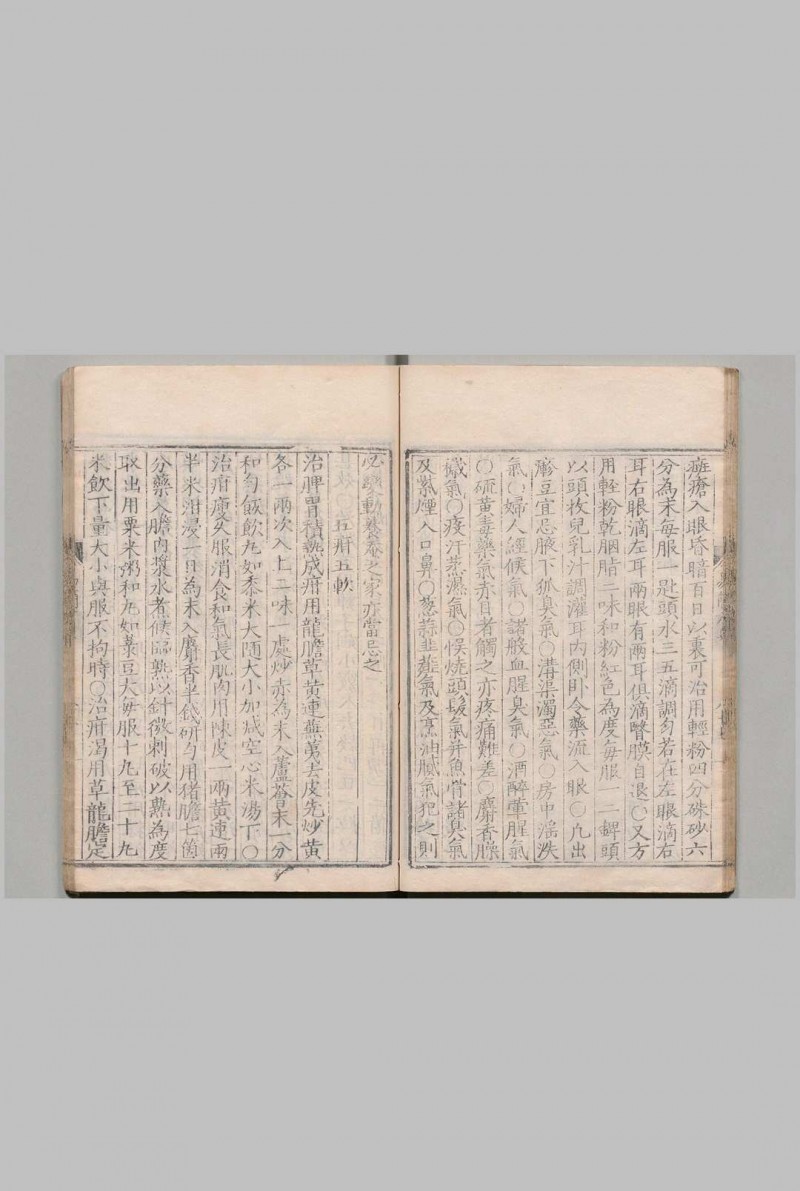 斑瘡入眼昏暗百日以裏可治用輕粉四分硃砂六
分為末每服一匙頭水三五滴調勻若在左眼滴右
耳右眼滴左耳兩眼有兩耳俱滴瞖膜自退○又方
用輕粉乾胭脂二味和粉紅色為度每服一二錍頭
以頭生兒乳汁調灌耳內側卧令藥流入眼○凡出
瘡豆宜忌腋下狐臭氣○溝渠濁惡氣○房中淫泆
氣○婦人經候氣○諸般血腥臭氣○酒醉葷腥氣
○硫黃毒藥氣赤目者觸之亦疼痛難差○麝香臊
穢氣○疫汗蒸濕氣○悞燒頭髮氣并魚骨諸臭氣
及紫煙入口鼻○葱蒜韭薤氣及烹油膩氣犯之則
必變動養之家亦當忌之
五疳五軟
治脾胃積熱成疳用龍膽草黃連蕪荑去皮先炒黃
各一兩次入上二味一處炒赤為末入蘆薈末一分
和勻飯飲丸如黍米大随大小加减空心米湯下○
治疳瘦久服消食和氣長肌肉用陳皮一兩黃連兩
半米泔浸一日為末入麝香半錢研勻用猪膽七箇
分藥入膽內漿水煮候臨熟以針微刺破以熟為度
取出用粟米粥和丸如菉豆大每服十丸至二十丸
米飲下量大小與服不拘時○治疳渴用草龍膽定